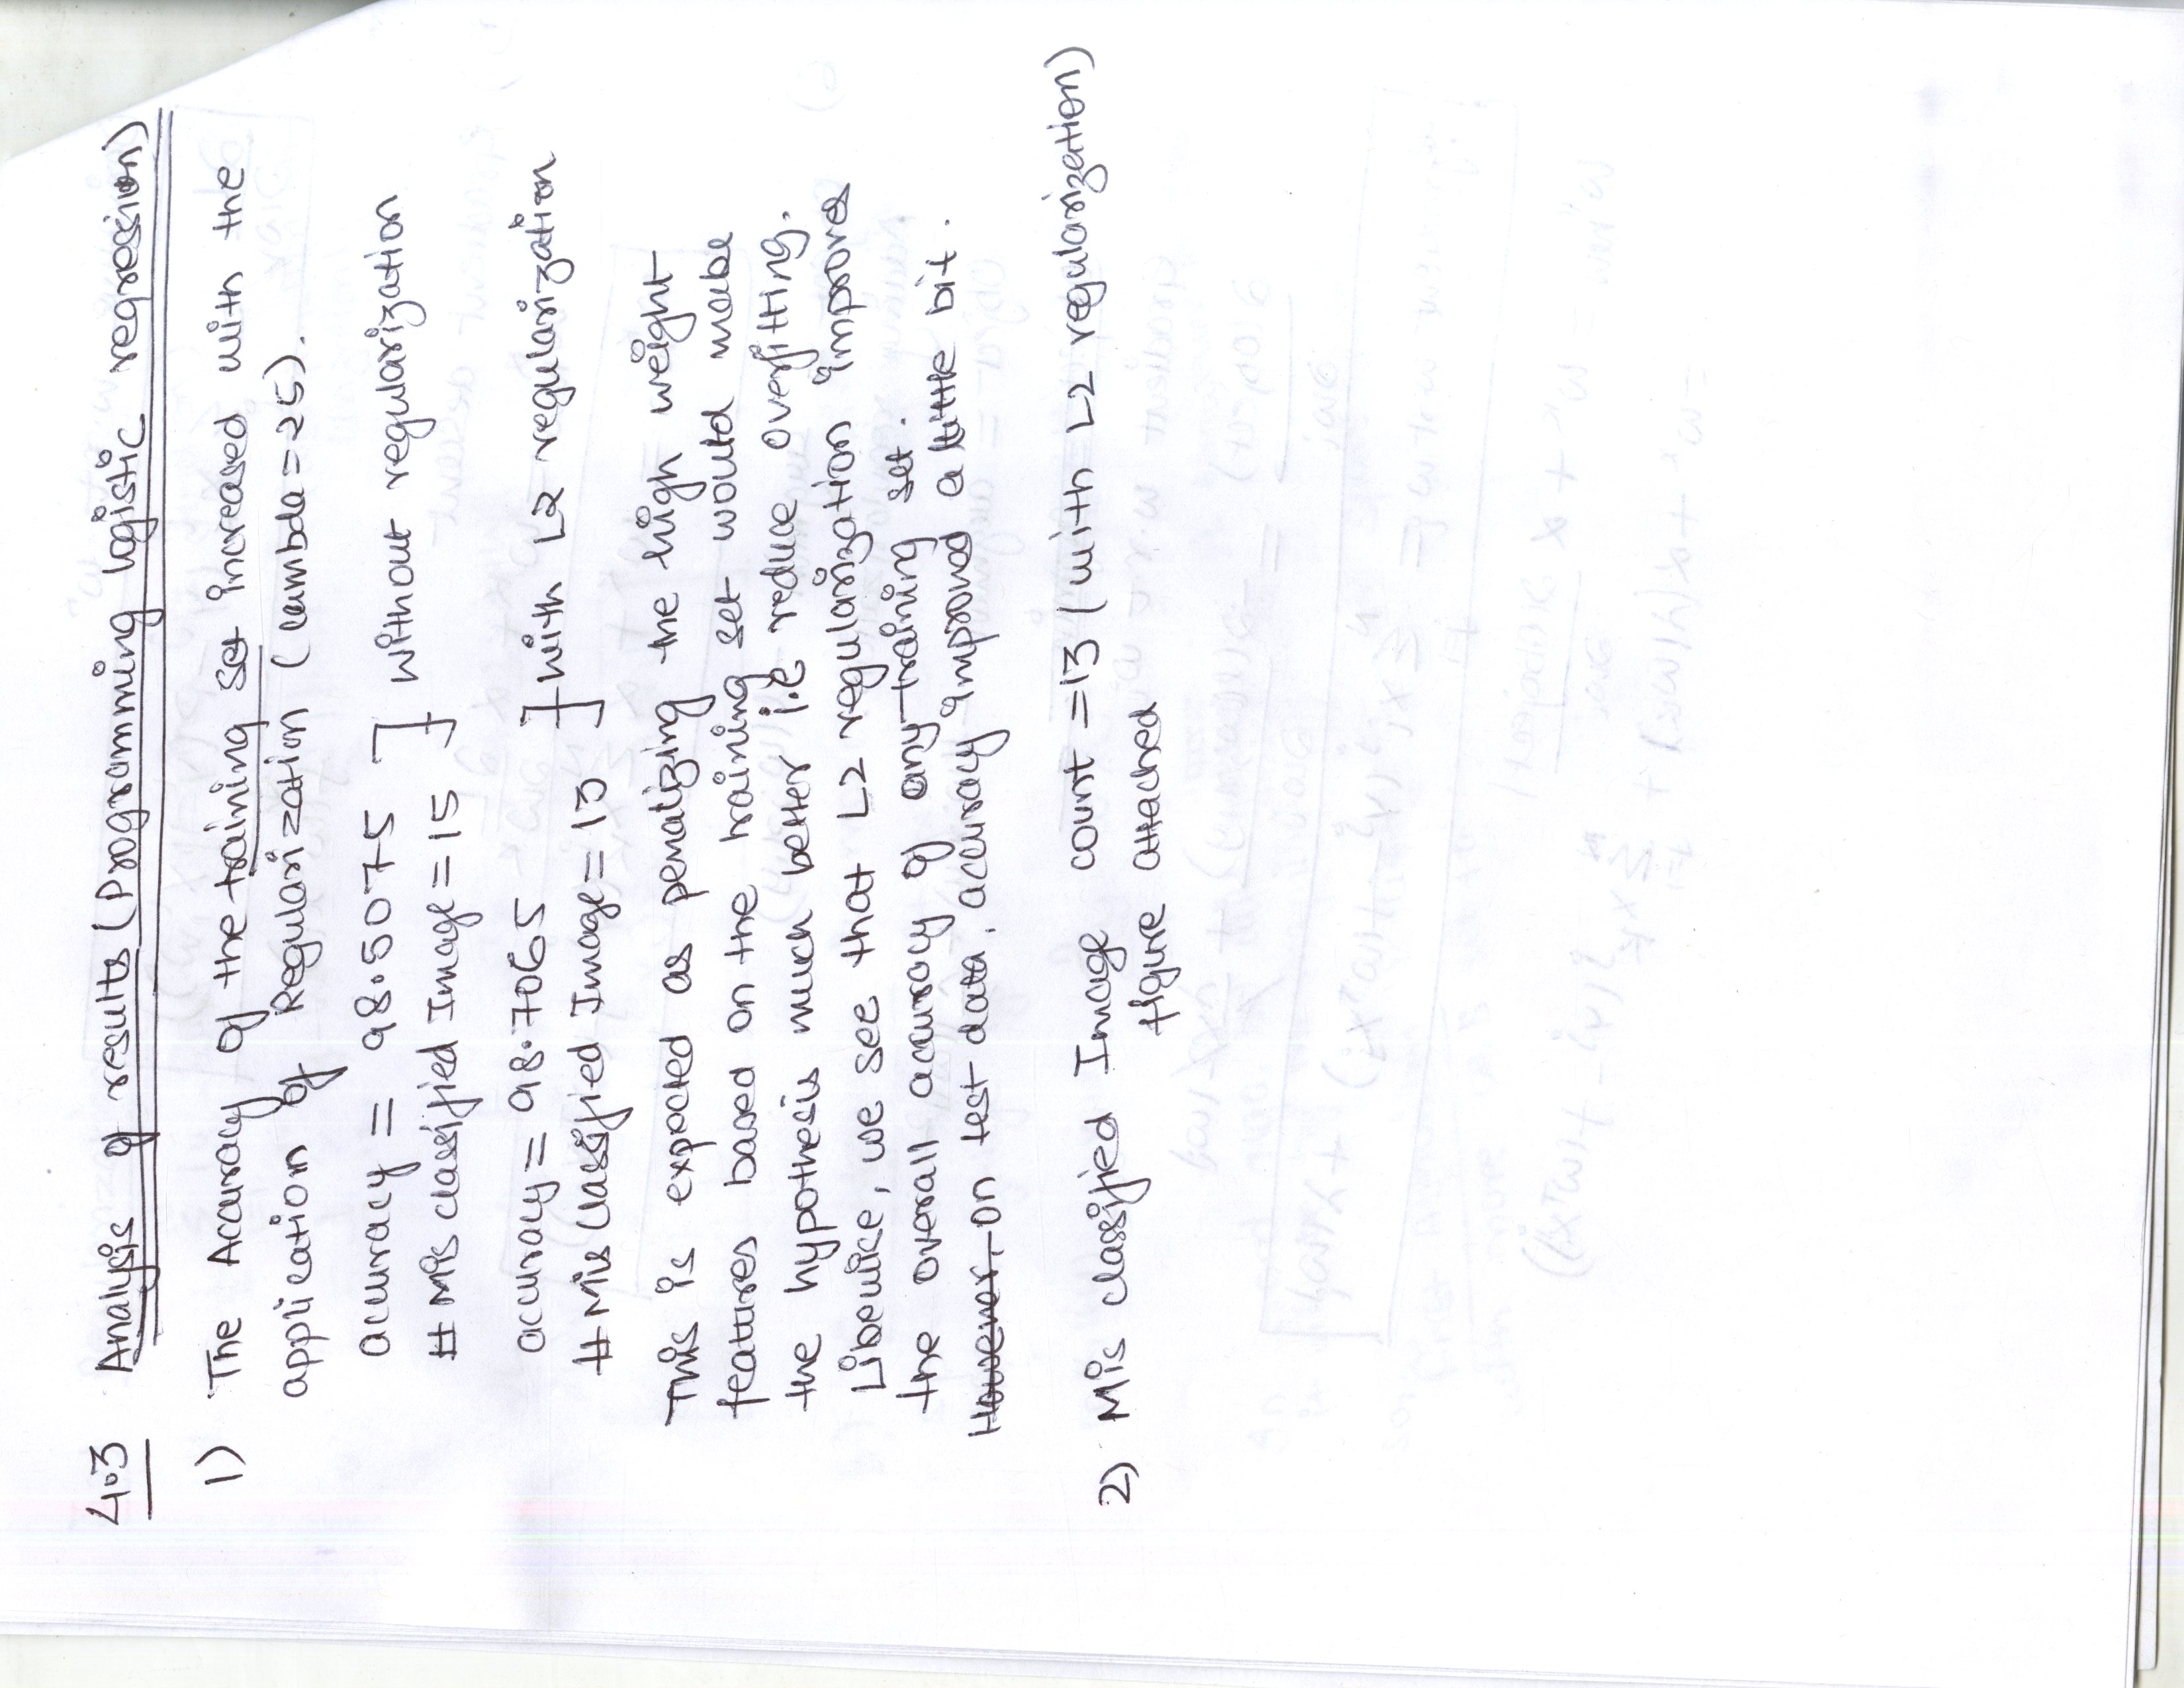 4.3 Analysis of results (Programming logistic regression)
1) The Accuracy of the training set increased with the
application of Regularization (lambda = 25).
accuracy = 98.5075 ] without regularization
# Mis classified Image = 15
accuracy = 98.7065 ] with L2-regularization
# Mis classified Image = 13
This is expected as penalizing the high weight
features based on the training set would make
the hypothesis much better i.e reduce overfitting.
Likewise, we see that L2 regularization improves
the overall accuracy of any training set.
However, on test data, accuracy improved a little bit.
2) Mis classified Image count = 13 (with L2 regularization)
figure attached